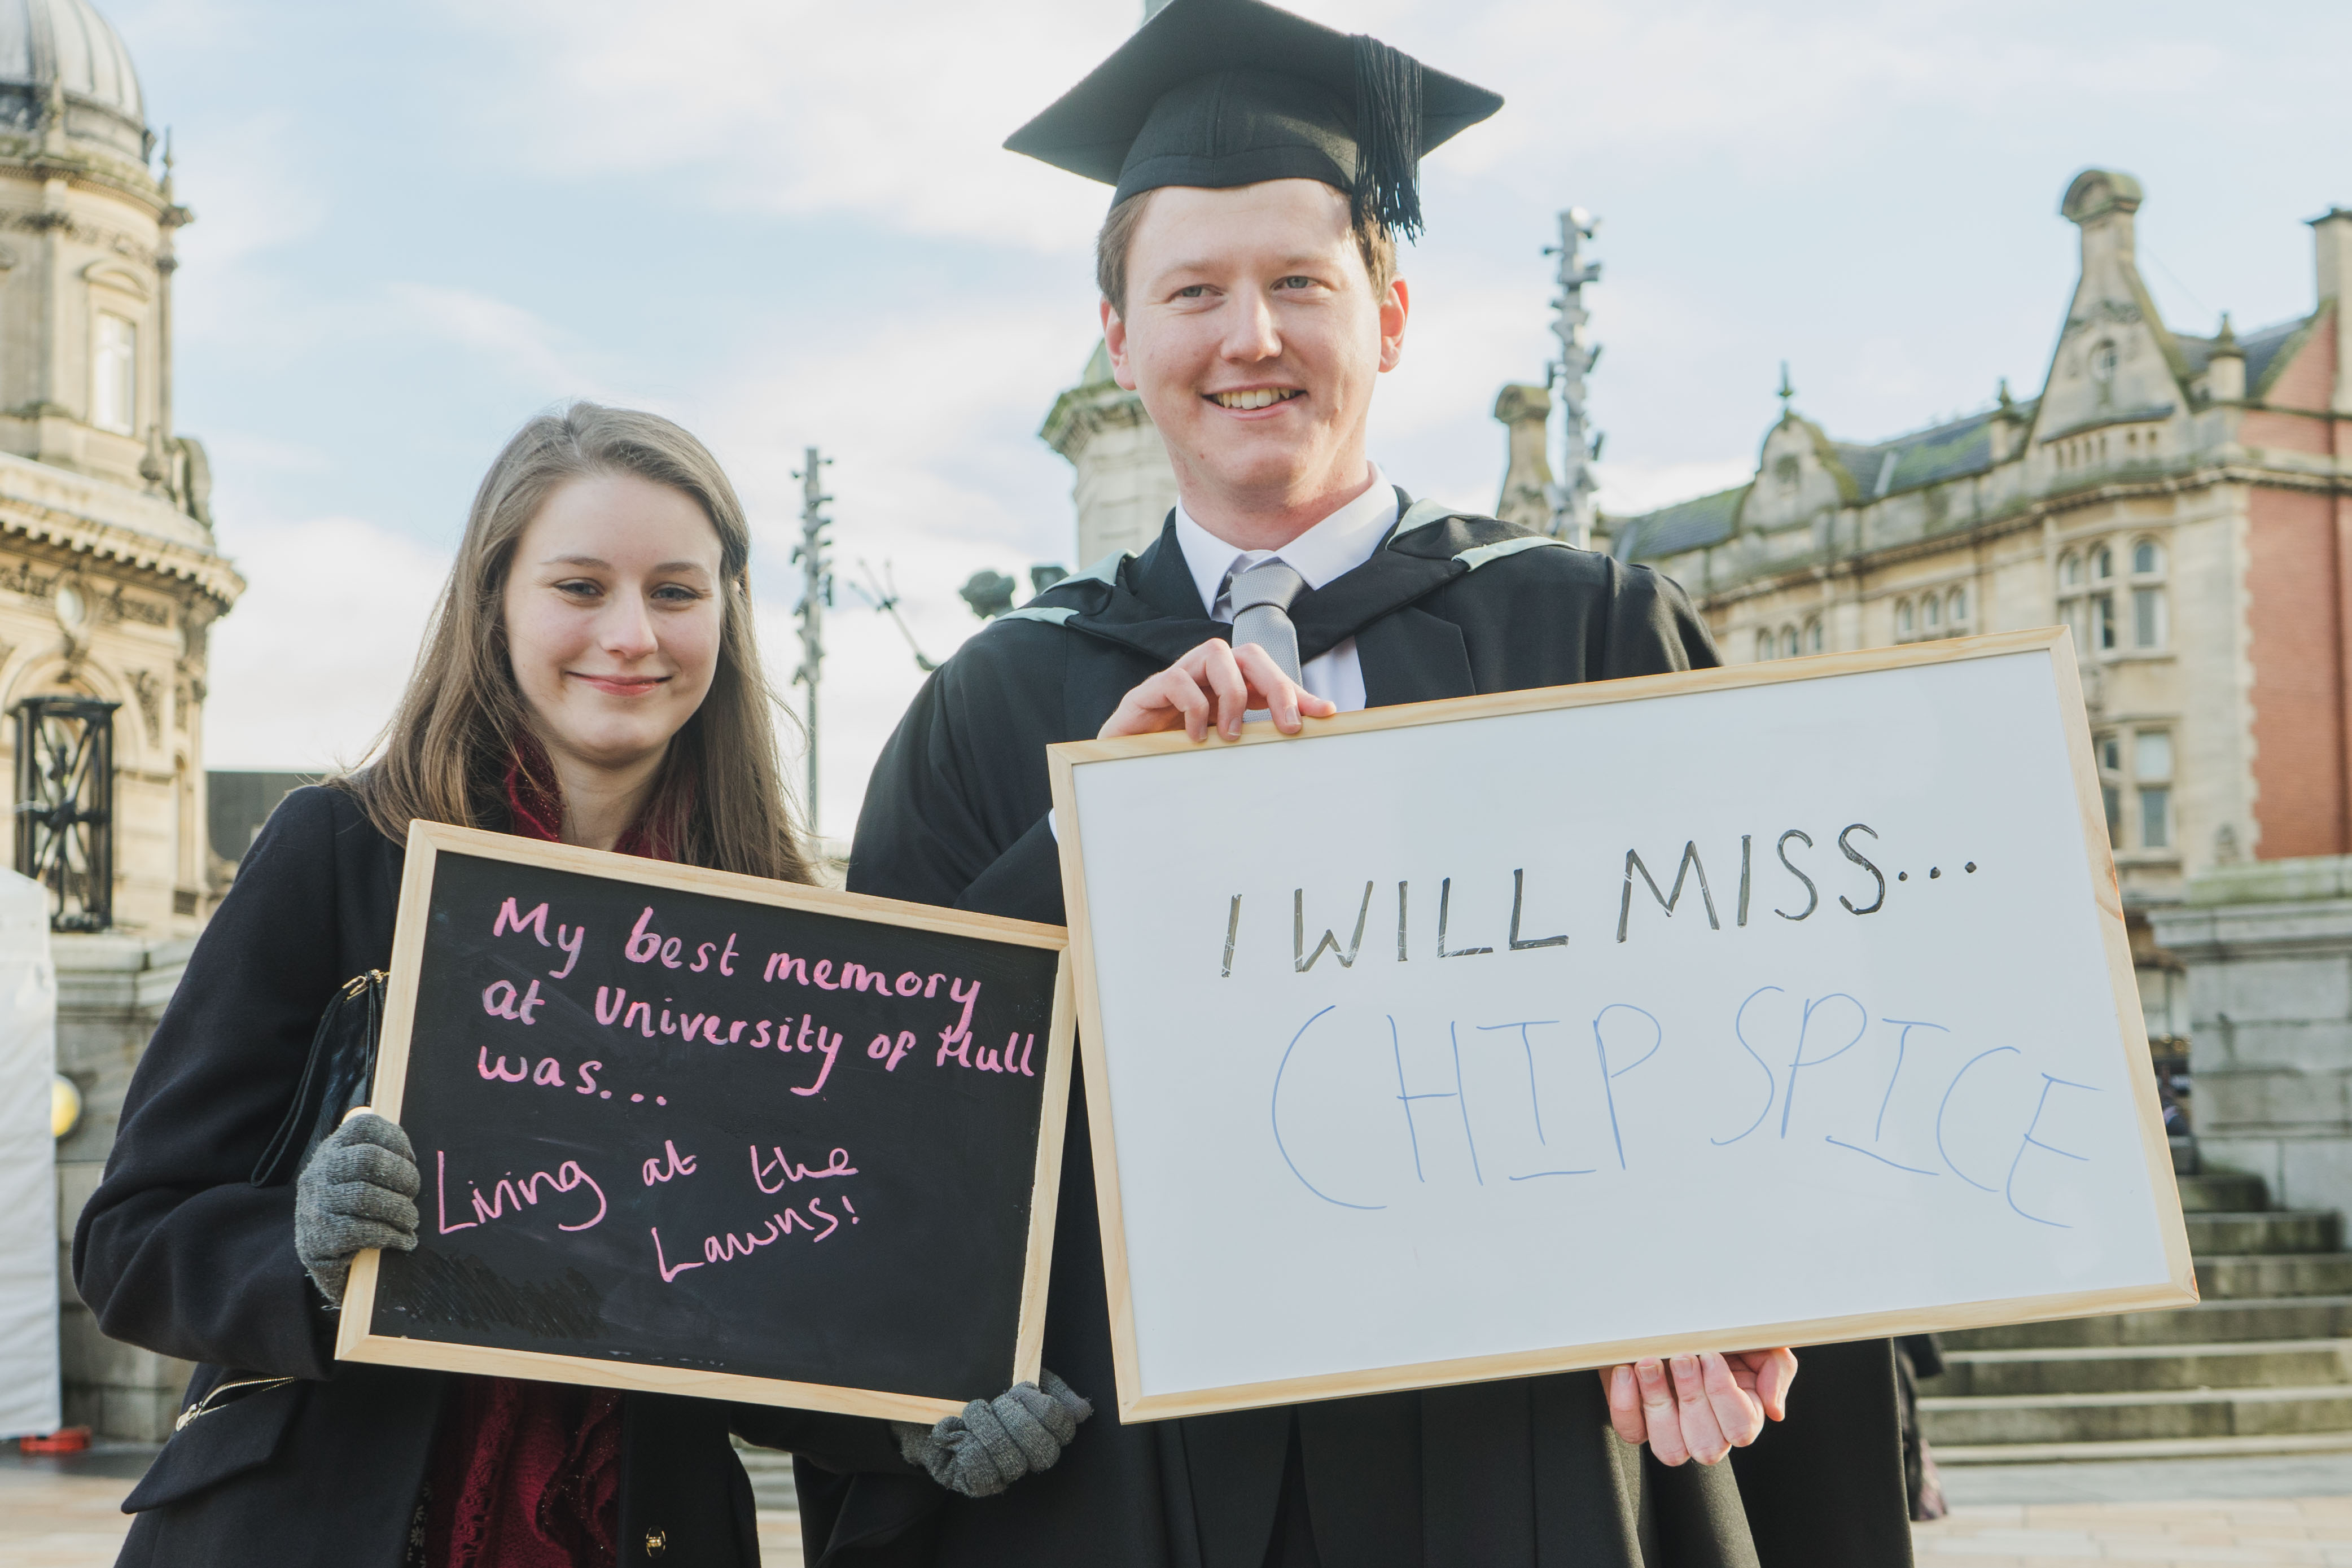 My best memory
at University of Hull
was...
Living at the
Lawns!
I WILL MISS...
CHIP SPICE